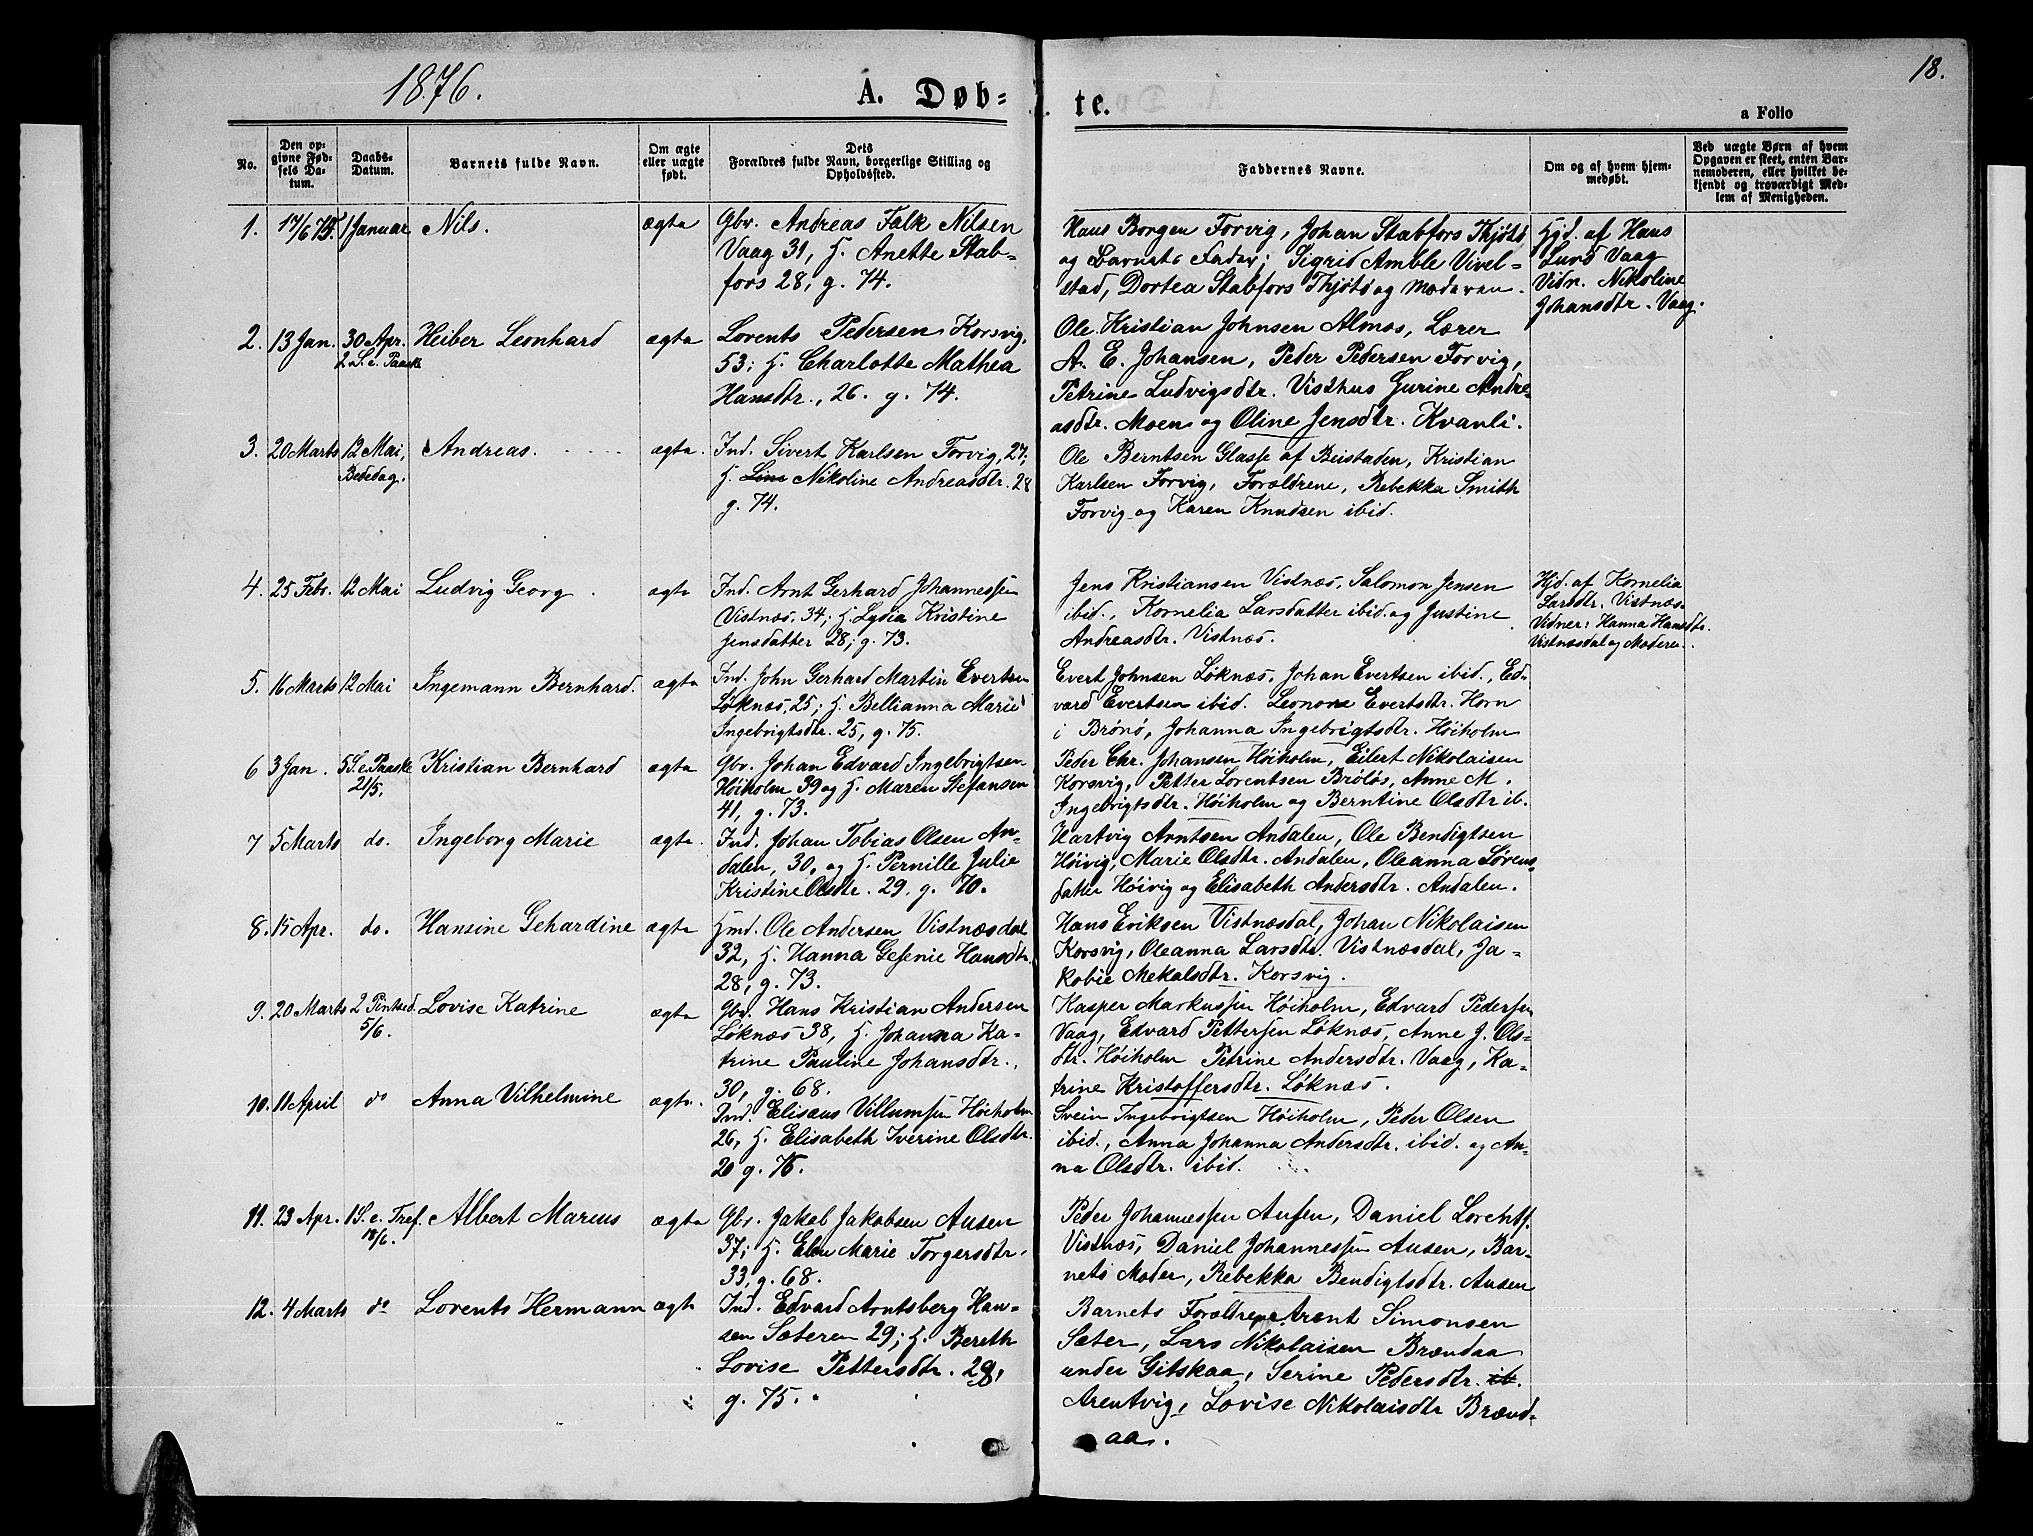 1876.
A. Døb=
te.
18.
a Folio
No.
Den op=
givne Fød=
sels Da=
tum.
Daabs=
Datum.
Barnets fulde Navn.
Om ægte
eller uægte
født.
Dets
Forældres fulde Navn, borgerlige Stilling og
Opholdssted.
Faddernes Navne.
Om og af hvem hjem=
medøbt.
Ved uægte Børn af hvem
Opgaven er skeet, enten Bar=
nemoderen, eller hvilket be=
kjendt og troværdigt Med=
lem af Menigheden.
1. 17/6 75. 1 Januar Nils. ægte
Gbr. Andreas Falk Nilsen
Vaag 31, H. Anette Stab=
fors 28; g. 74.
Hans Borgen Forvig, Johan Stabfors Thjøtø
og Barnets Fader; Sigrid Amble Vivel=
stad, Dortea Stabfors Thjøtø og Moderen.
Hjd. af Hans
Lund Vaag
Vidn. Nikoline
Johansdtr. Vaag.
2. 13 Jan. 30 Apr. Heiber Leonhard ægte
2. S. e. Paaske
Lorents Pedersen Korsvig,
53; H. Charlotte Mathea
Hansdtr., 26. g. 74.
Ole Kristian Johnsen Almos, Lærer
A. E. Johansen, Peder Pedersen Forvig,
Petrine Ludvigsdtr. Visthus Gurine Andre=
asdtr. Moen og Oline Jensdtr. Kvanli.
3. 20 Marts 12 Mai, Andreas. ægte.
Bededag.
Ind. Sivert Karlsen Forvig, 27;
H. Line Nikoline Andreasdtr. 28
g. 74.
Ole Berntsen Glasse af Beistaden, Kristian
Karlsen Forvig, Forældrene, Rebekka Smith
Forvig og Karen Knudsen ibid.
4. 25 Febr. 12 Mai Ludvig Georg. ægte
Ind. Arnt Gerhard Johannessen
Vistnæs, 34; H. Lydia Kristine
Jensdatter 28; g. 73.
Jens Kristiansen Vistnæs, Salomon Jensen
ibid., Kornelia Larsdatter ibid. og Justine
Andreasdtr. Vistnæs.
Hjd. af Kornelia
Larsdtr. Vistnæs.
Vidner: Hanna Hansdtr.
Vistnæsdal og Moderen.
5. 16 Marts 12 Mai Ingemann Bernhard. ægte
Ind. John Gerhard Martin Evertsen
Løknæs, 25; H. Bellianna Marie
Ingebrigtsdtr. 25, g. 75.
Evert Johnsen Løknæs, Johan Evertsen ibid., Ed=
vard Evertsen ibid. Leonore Evertsdtr. Horn
i Brønø, Johanna Ingebrigtsdtr. Høiholm
6 3 Jan. 5 S. e. Paaske Kristian Bernhard ægte
21/5.
Gbr. Johan Edvard Ingebrigtsen
Høiholm 39 og H. Maren Stefansen
41, g. 73.
Peder Chr. Johansen Høiholm, Eilert Nikolaisen
Korsvig, Petter Lorentsen Brøløs, Anne M.
Ingebrigtsdtr. Høiholm og Berntine Olsdtr ib.
7 5 Marts do. Ingeborg Marie ægte.
Ind. Johan Tobias Olsen An=
dalen, 30, og H. Pernille Julie
Kristine Olsdtr. 29. g. 70.
Hartvig Arntsen Andalen, Ole Bendigtsen
Høivig, Marie Olsdtr. Andalen, Oleanna Sørens=
datter Høivig og Elisabeth Andersdtr. Andalen.
8. 15 Apr. do. Hansine Gehardine ægte
Hmd. Ole Andersen Vistnæsdal
32, H. Hanna Gesenie Hansdtr.
28, g. 73.
Hans Eriksen Vistnæsdal, Johan Nikolaisen
Korsvig, Oleanna Larsdtr. Vistnæsdal, Ja=
kobie Mekalsdtr. Korsvig.
9. 20 Marts 2 Pintsed. Lovise Katrine ægte
5/6.
Gbr. Hans Kristian Andersen
Løknæs 38, H. Johanna Ka=
trine Pauline Johansdtr.,
30, g. 68.
Kasper Markussen Høiholm, Edvard Pedersen
Vaag, Edvard Pettersen Løknæs, Anne J. Ols=
dtr. Høiholm Petrine Andersdtr. Vaag, Ka=
trine Kristoffersdtr. Løknæs.
10. 11 April do Anna Vilhelmine ægte.
Ind. Elisæus Villumsen Høiholm
26, H. Elisabeth Iverine Olsdtr.
20 g. 76.
Svein Ingebrigtsen Høiholm, Peder Olsen
ibid., Anna Johanna Andersdtr. ibid. og An=
na Olsdtr. ibid.
11. 23 Apr. 1 S. e. Tref. Albert Marius ægte
18/6.
Gbr. Jakob Jakobsen Ausen
37; H. Elen Marie Torgersdtr.
33, g. 68.
Peder Johannessen Ausen, Daniel Lorentss.
Vistnæs, Daniel Johannessen Ausen, Bar=
nets Moder, Rebekka Bendigtsdtr. Ausen
12. 4 Marts do Lorents Hermann ægte
Ind. Edvard Arntsberg Han=
sen Sæteren 29; H. Bereth
Lovise Pettersdtr. 29,
g. 75.
Barnets Forældrene, Arent Simonsen
Sæter, Lars Nikolaisen Brændaa
under Gitskaa, Serine Pedersdtr. ib.
Arentvig, Lovise Nikolaisdtr Brænd=
aa.